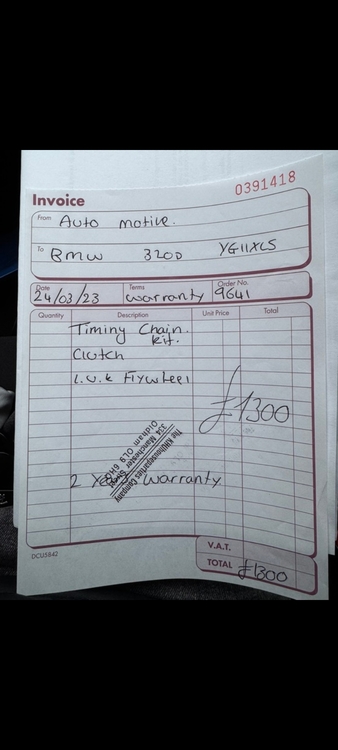 0391418
Invoice
From Auto motive.
To BMW 320D YG11XLS
Date Terms Order No.
24/03/23 warranty 9641
Quantity Description Unit Price Total
Timing Chain.
kit.
Clutch
L.u.k Flywheel
£1300
334 Manchester Street
Oldham OL9 6H
2 Years Warranty
V.A.T.
TOTAL £1300
DCU5842